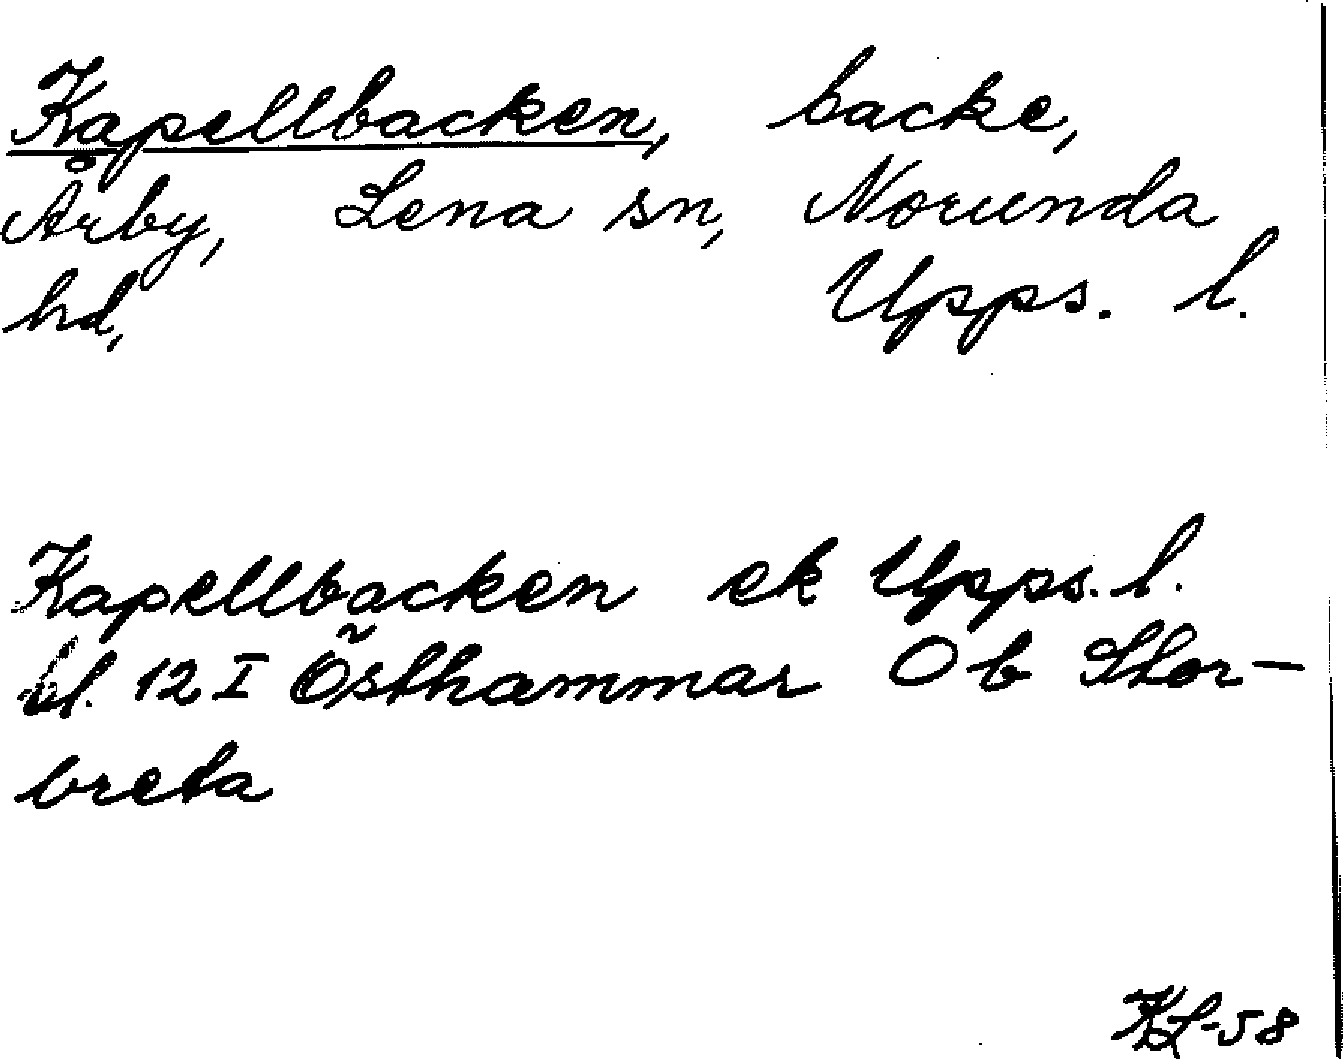 Kapellbacken, backe,
Årby, Lena sn, Norunda
hd, Upps. l.
Kapellbacken ek Upps. l.
bl. 12 I Östhammar O b Stor-
breta
KL-58